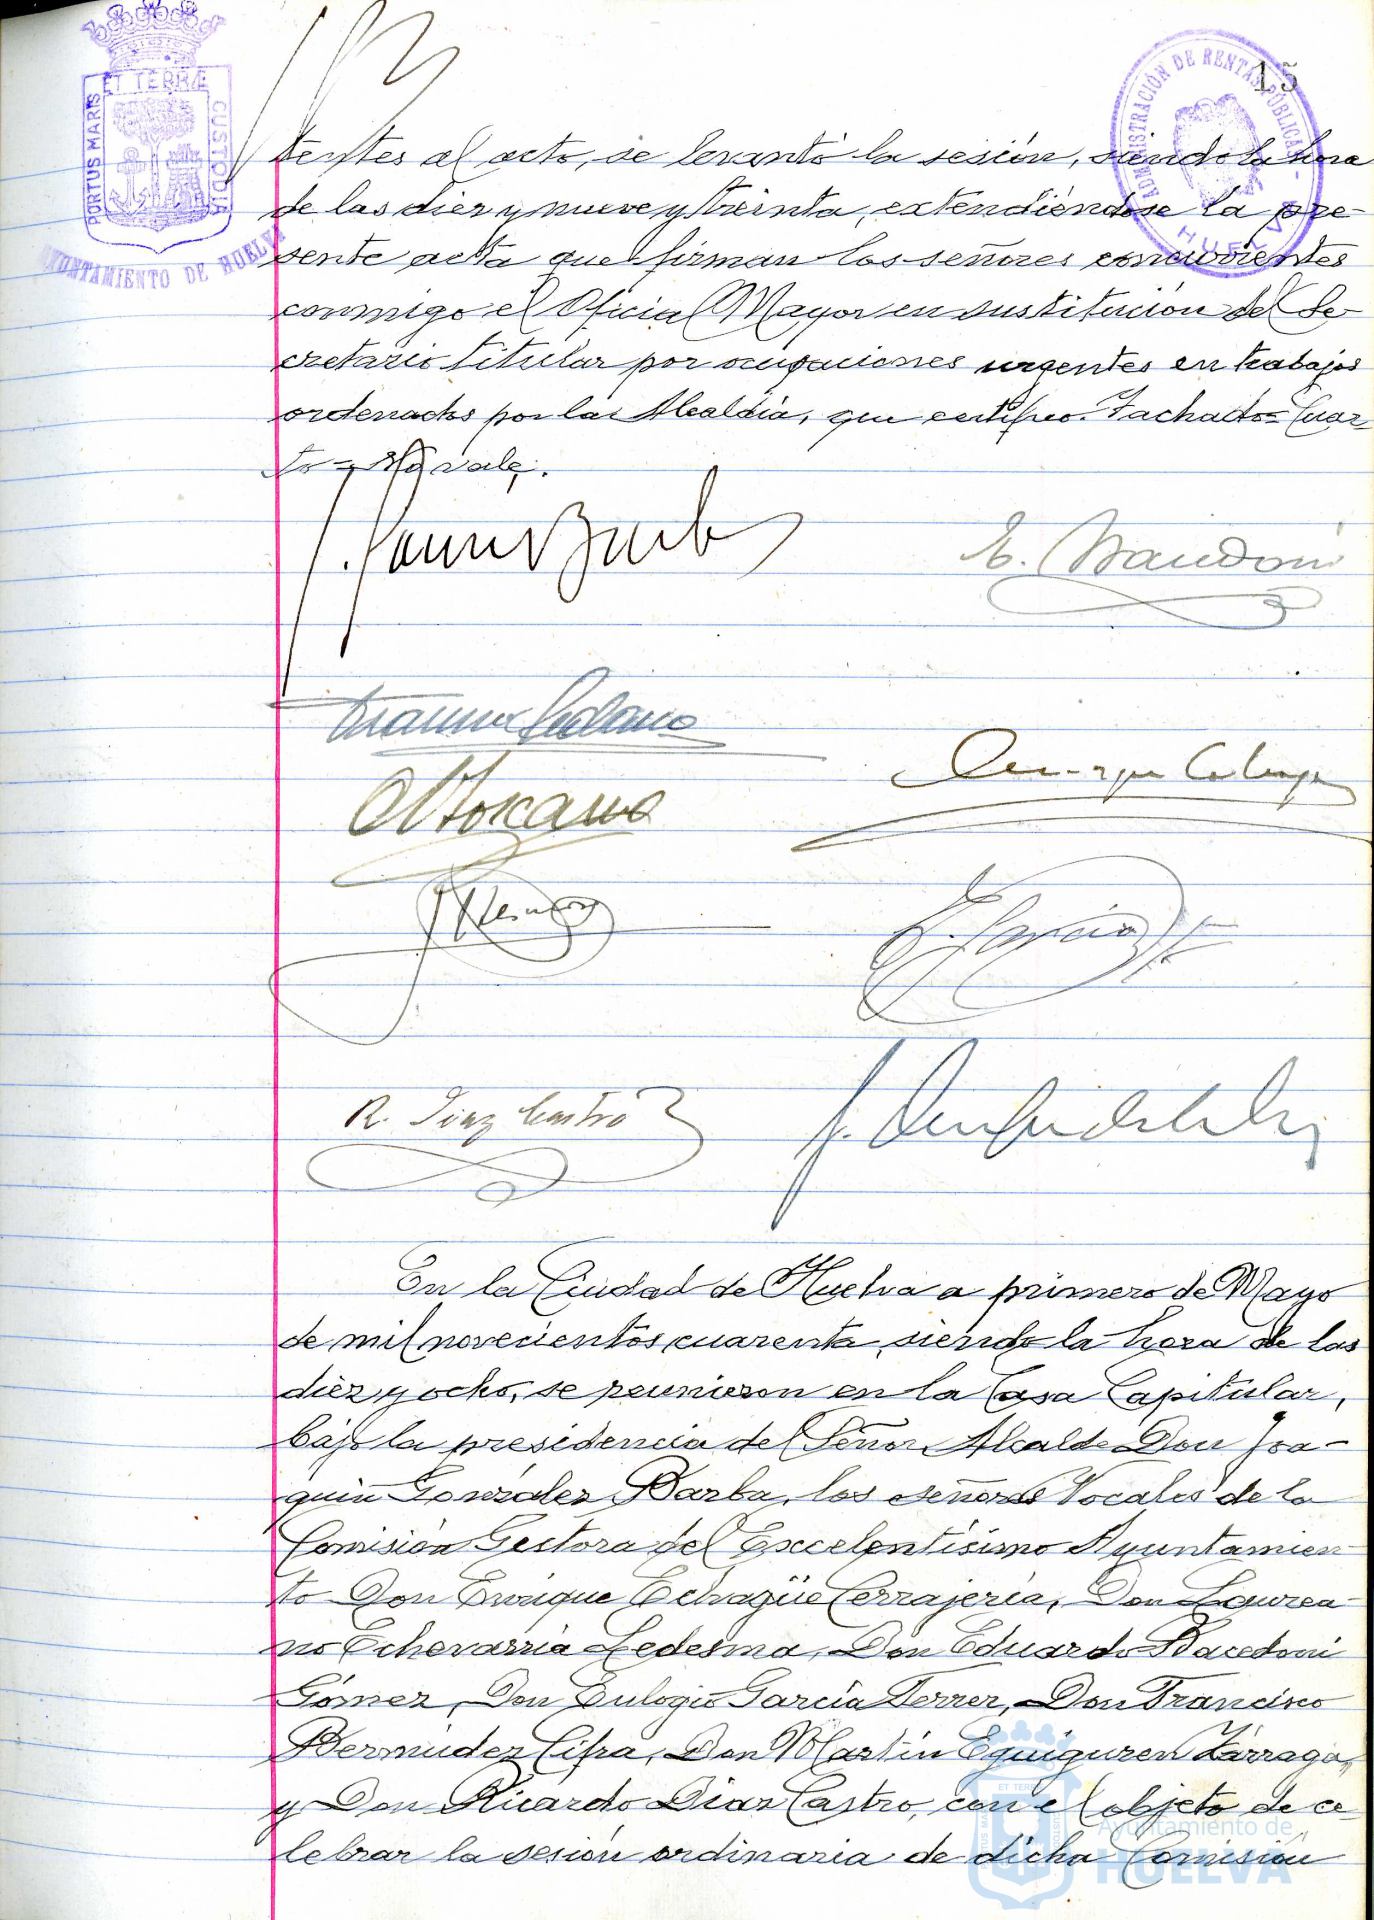 15
PORTUS MARIS
ET TERRÆ
CUSTODIA
AYUNTAMIENTO DE HUELVA
ADMINISTRACIÓN DE RENTAS PÚBLICAS
HUELVA
tentes al acto, se levantó la sesión, siendo la hora
de las diez y nueve y treinta, extendiéndose la pre-
sente acta que firman los señores concurrentes
conmigo el Oficial Mayor en sustitución del Se-
cretario titular por ocupaciones urgentes en trabajos
ordenados por la Alcaldía, que certifico. Tachado = Cuar-
to = No vale.
E. Bacedoni
R. Diaz Castro
En la Ciudad de Huelva a primero de Mayo
de mil novecientos cuarenta, siendo la hora de las
diez y ocho, se reunieron en la Casa Capitular,
bajo la presidencia del Señor Alcalde Don Joa-
quin González Barba, los señores Vocales de la
Comisión Gestora del Excelentísimo Ayuntamien-
to Don Enrique Echagüe Cerrajería, Don Laurea-
no Echevarria Ledesma, Don Eduardo Bacedoni
Gómez, Don Eulogio García Ferrer, Don Francisco
Bermúdez Cifra, Don Martín Eguiguren Zárraga,
y Don Ricardo Diaz Castro, con el objeto de ce-
lebrar la sesión ordinaria de dicha Comisión
Ayuntamiento de
HUELVA